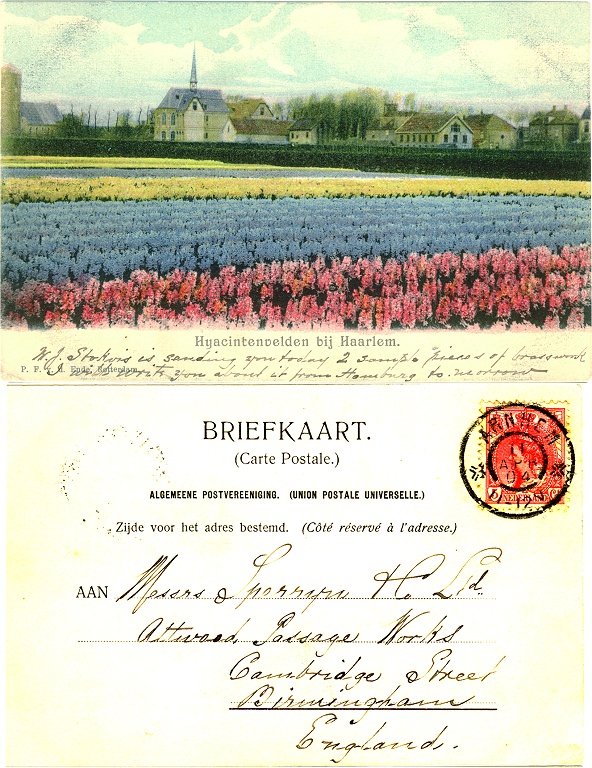 Hyacintenvelden bij Haarlem.
W. J. Stokvis is sending you today 2 sample pieces of brasswork
P. F. v. d. Ende, Rotterdam
I will write you about it from Hamburg to-morrow
BRIEFKAART.
(Carte Postale.)
ALGEMEENE POSTVEREENIGING. (UNION POSTALE UNIVERSELLE.)
Zijde voor het adres bestemd. (Côté réservé à l'adresse.)
ARNHEM
APR
04
NEDERLAND
AAN Messrs Sporryn & Co Ld.
Attwood Passage Works
Cambridge Street
Birmingham
England.